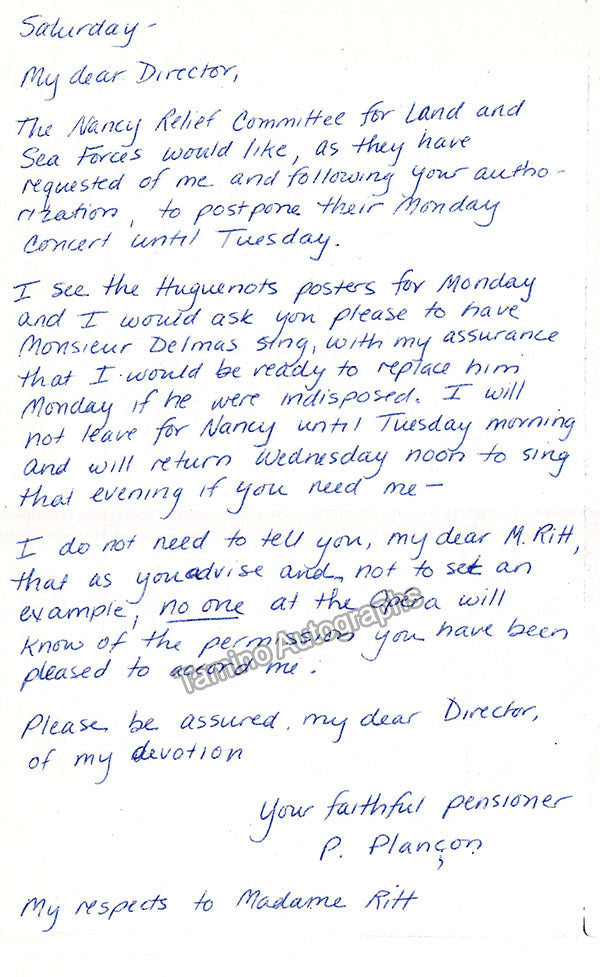 Saturday -
My dear Director,
The Nancy Relief Committee for Land and
Sea Forces would like, as they have
requested of me and following your autho-
rization, to postpone their Monday
Concert until Tuesday.
I see the Huguenots posters for Monday
and I would ask you please to have
Monsieur Delmas sing, with my assurance
that I would be ready to replace him
Monday if he were indisposed. I will
not leave for Nancy until Tuesday morning
and will return Wednesday noon to sing
that evening if you need me -
I do not need to tell you, my dear M. Ritt,
that as you advise and, not to set an
example, no one at the Opera will
know of the permission you have been
pleased to accord me.
Tamino Autographs
Please be assured, my dear Director,
of my devotion
Your faithful pensioner
P. Plançon
My respects to Madame Ritt